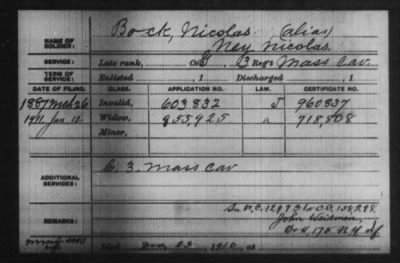 NAME OF SOLDIER: Bock, Nicolas. (alias)
Ney, Nicolas.
SERVICE: Late rank, Co. G, 3 Reg't Mass Cav.
TERM OF SERVICE: Enlisted , 1 Discharged , 1
DATE OF FILING. CLASS. APPLICATION NO. LAW. CERTIFICATE NO.
1887 Mch 26 Invalid, 603832 J 960837
1911 Jan 12 Widow, 955,925 a 718,808
Minor,
ADDITIONAL SERVICES: G. 3. Mass Cav
C.O. 138,298.
John
REMARKS: 170 N.Y.
Died Dec 23, 1910, at